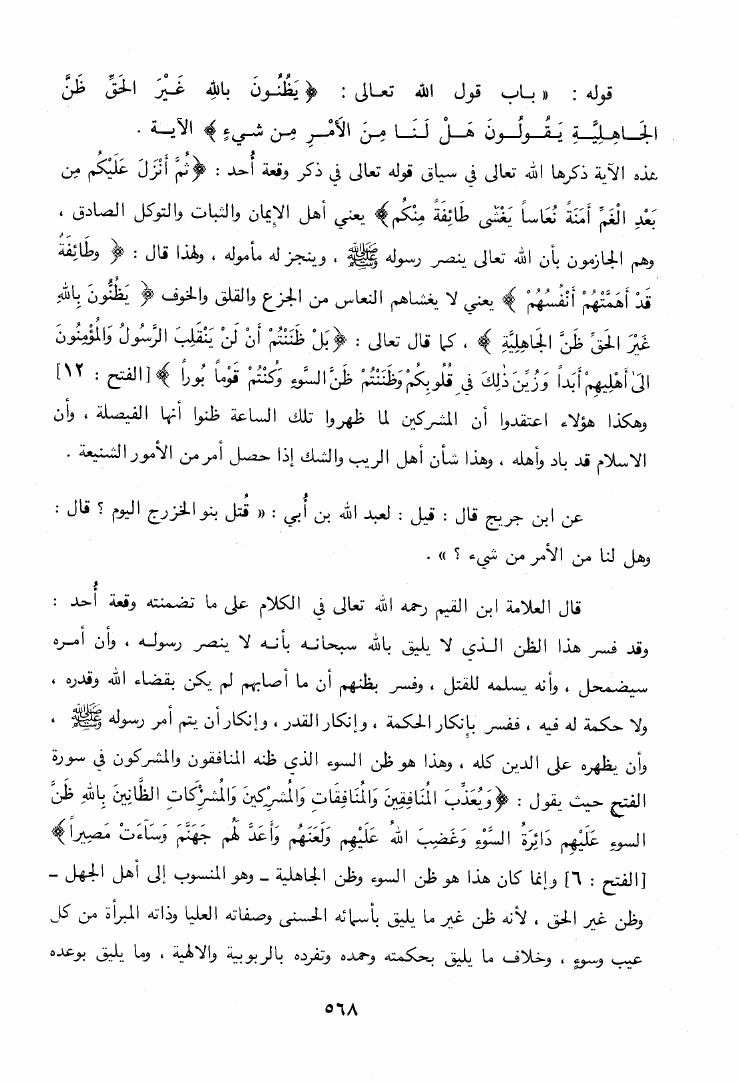 قوله : « بـاب قول الله تعـالى : ﴿ يَظُنُّـونَ بِاللهِ غَـيْرَ الحَقِّ ظَنَّ
الجَـاهِلِيَّـةِ يَـقُـولُـونَ هَـلْ لَنَـا مِنَ الأَمْـرِ مِـن شـيءٍ ﴾ الآيـة .
هذه الآية ذكرها الله تعالى في سياق قوله تعالى في ذكر وقعة أُحد : ﴿ثُمَّ أَنْزَلَ عَلَيْكُم مِن
بَعْدِ الْغَمِّ أَمَنَةً نُعَاساً يَغْشَى طَائِفَةً مِنْكُم﴾ يعني أهل الإيمان والثبات والتوكل الصادق ،
وهم الجازمون بأن الله تعالى ينصر رسوله ﷺ ، وينجز له مأموله ، ولهذا قال : ﴿ وطَائِفَةٌ
قَدْ أَهَمَّتْهُمْ أَنْفُسُهُمْ ﴾ يعني لا يغشاهم النعاس من الجزع والقلق والخوف ﴿ يَظُنُّونَ بِاللهِ
غَيْرَ الحَقِّ ظَنَّ الجَاهِلِيَّةِ ﴾ ، كما قال تعالى : ﴿بَلْ ظَنَنْتُمْ أَنْ لَنْ يَنْقَلِبَ الرَّسُولُ وَالْمُؤْمِنُونَ
الىٰ أَهْلِيهِمْ أَبَداً وَزُيِّنَ ذٰلِكَ فِي قُلُوبِكُمْ وَظَنَنْتُمْ ظَنَّ السَّوءِ وَكُنْتُمْ قَوْماً بُوراً ﴾ [الفتح : ١٢]
وهكذا هؤلاء اعتقدوا أن المشركين لما ظهروا تلك الساعة ظنوا أنها الفيصلة ، وأن
الاسلام قد باد وأهله ، وهذا شأن أهل الريب والشك إذا حصل أمر من الأمور الشنيعة .
عن ابن جريج قال : قيل : لعبد الله بن أُبي : « قُتل بنو الخزرج اليوم ؟ قال :
وهل لنا من الأمر من شيء ؟ » .
قال العلامة ابن القيم رحمه الله تعالى في الكلام على ما تضمنته وقعة أُحد :
وقد فسر هذا الظن الـذي لا يليق بالله سبحانـه بأنـه لا ينصر رسولـه ، وأن أمـره
سيضمحل ، وأنه يسلمه للقتل ، وفسر بظنهم أن ما أصابهم لم يكن بقضاء الله وقدره ،
ولا حكمة له فيه ، ففسر بإنكار الحكمة ، وإنكار القدر ، وإنكار أن يتم أمر رسوله ﷺ ،
وأن يظهره على الدين كله ، وهذا هو ظن السوء الذي ظنه المنافقون والمشركون في سورة
الفتح حيث يقول : ﴿وَيُعَذِّبَ الْمُنَافِقِينَ وَالْمُنَافِقَاتِ وَالْمُشْرِكِينَ وَالْمُشْرِكَاتِ الظَّانِينَ بِاللهِ ظَنَّ
السوءِ عَلَيْهِم دَائِرَةُ السَّوْءِ وَغَضِبَ اللهُ عَلَيْهِم وَلَعَنَهُم وَأَعَدَّ لَهُم جَهَنَّمَ وَسَآءَتْ مَصِيراً﴾
[الفتح : ٦] وإنما كان هذا هو ظن السوء وظن الجاهلية ـ وهو المنسوب إلى أهل الجهل ـ
وظن غير الحق ، لأنه ظن غير ما يليق بأسمائه الحسنى وصفاته العليا وذاته المبرأة من كل
عيب وسوءٍ ، وخلاف ما يليق بحكمته وحمده وتفرده بالربوبية والالهية ، وما يليق بوعده
٥٦٨